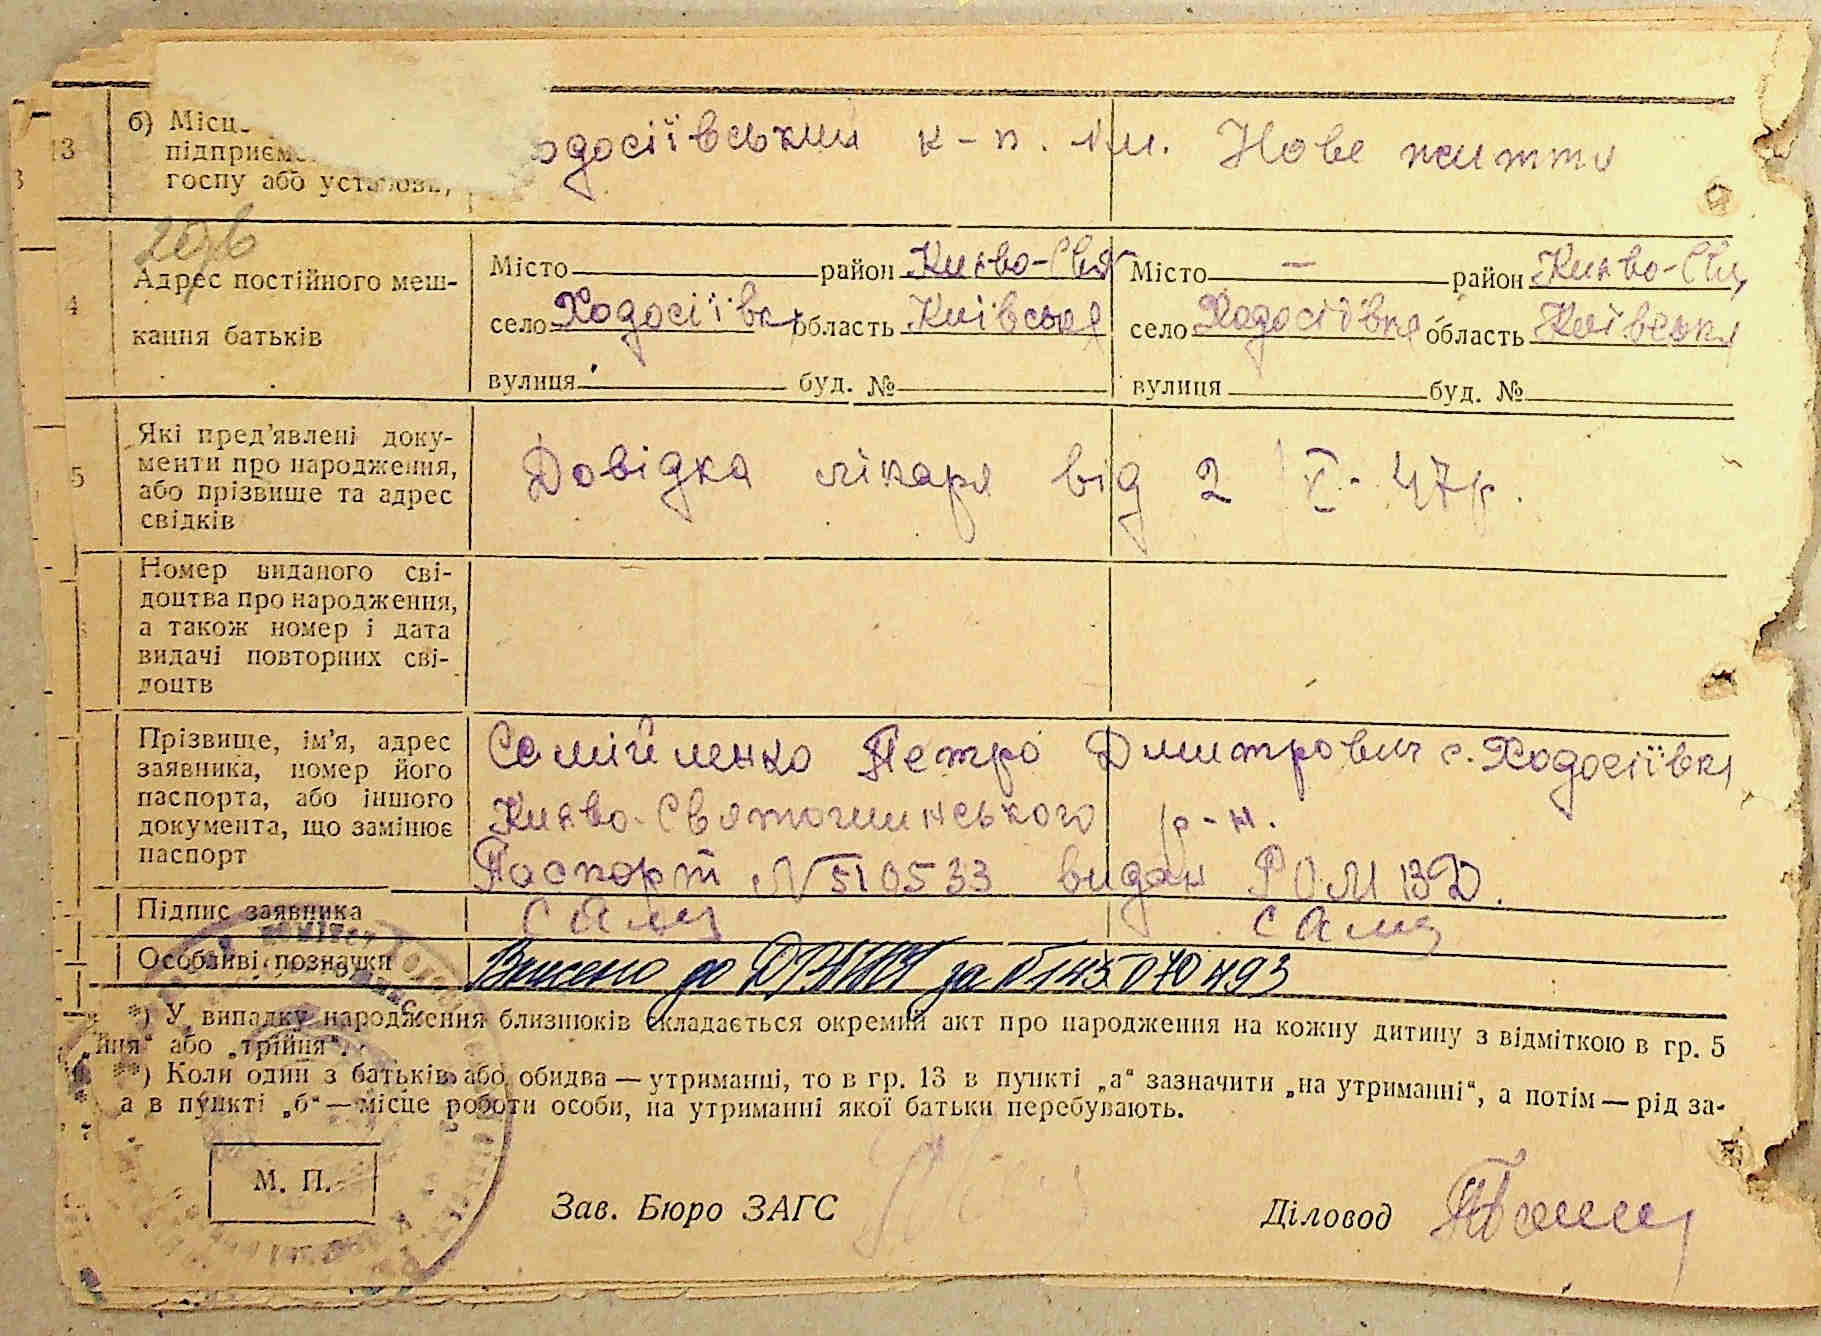 13 б) Місц
підприєм
госпу або установи,
одосіївський к-п. ім. Нове життя
4 Адрес постійного меш-
кання батьків
Місто район Києво-Свят
село Ходосіївка область Київська
вулиця буд. №
Місто — район Києво-Свят
село Ходосіївка область Київська
вулиця буд. №
5 Які пред'явлені доку-
менти про народження,
або прізвище та адрес
свідків
Довідка лікаря від 2 X - 47р.
Номер виданого сві-
доцтва про народження,
а також номер і дата
видачі повторних сві-
доцтв
Прізвище, ім'я, адрес
заявника, номер його
паспорта, або іншого
документа, що замінює
паспорт
Самійленко Петро Дмитрович с. Ходосіївка
Києво-Святошинського р-н.
Паспорт № 510533 видан РОМВД.
Підпис заявника
Особливі позначки
Внесено до ДРАЦСГ за №
*) У випадку народження близнюків складається окремий акт про народження на кожну дитину з відміткою в гр. 5
йня" або „трійня".
**) Коли один з батьків або обидва — утриманці, то в гр. 13 в пункті „а" зазначити „на утриманні", а потім — рід за-
а в пункті „б" — місце роботи особи, на утриманні якої батьки перебувають.
М. П.
Зав. Бюро ЗАГС
Діловод